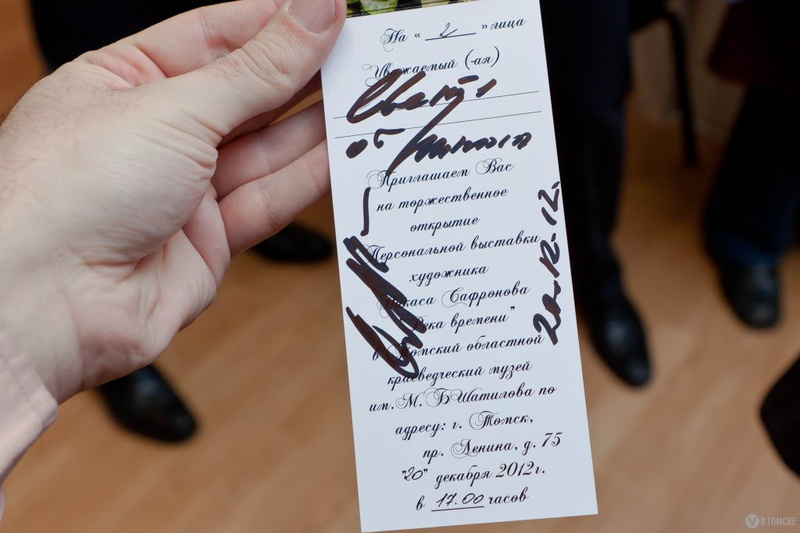 На « 2 » лица
Уважаемый (-ая)
от
Приглашаем Вас
на торжественное
открытие
Персональной выставки
художника
Никаса Сафронова
"Река времени"
в Томской областной
краеведческий музей
им. М. Б Шатилова по
адресу: г. Томск,
пр. Ленина, д. 75
"20" декабря 2012г.
в 17.00 часов
20.12.12.
В ТОМСКЕ